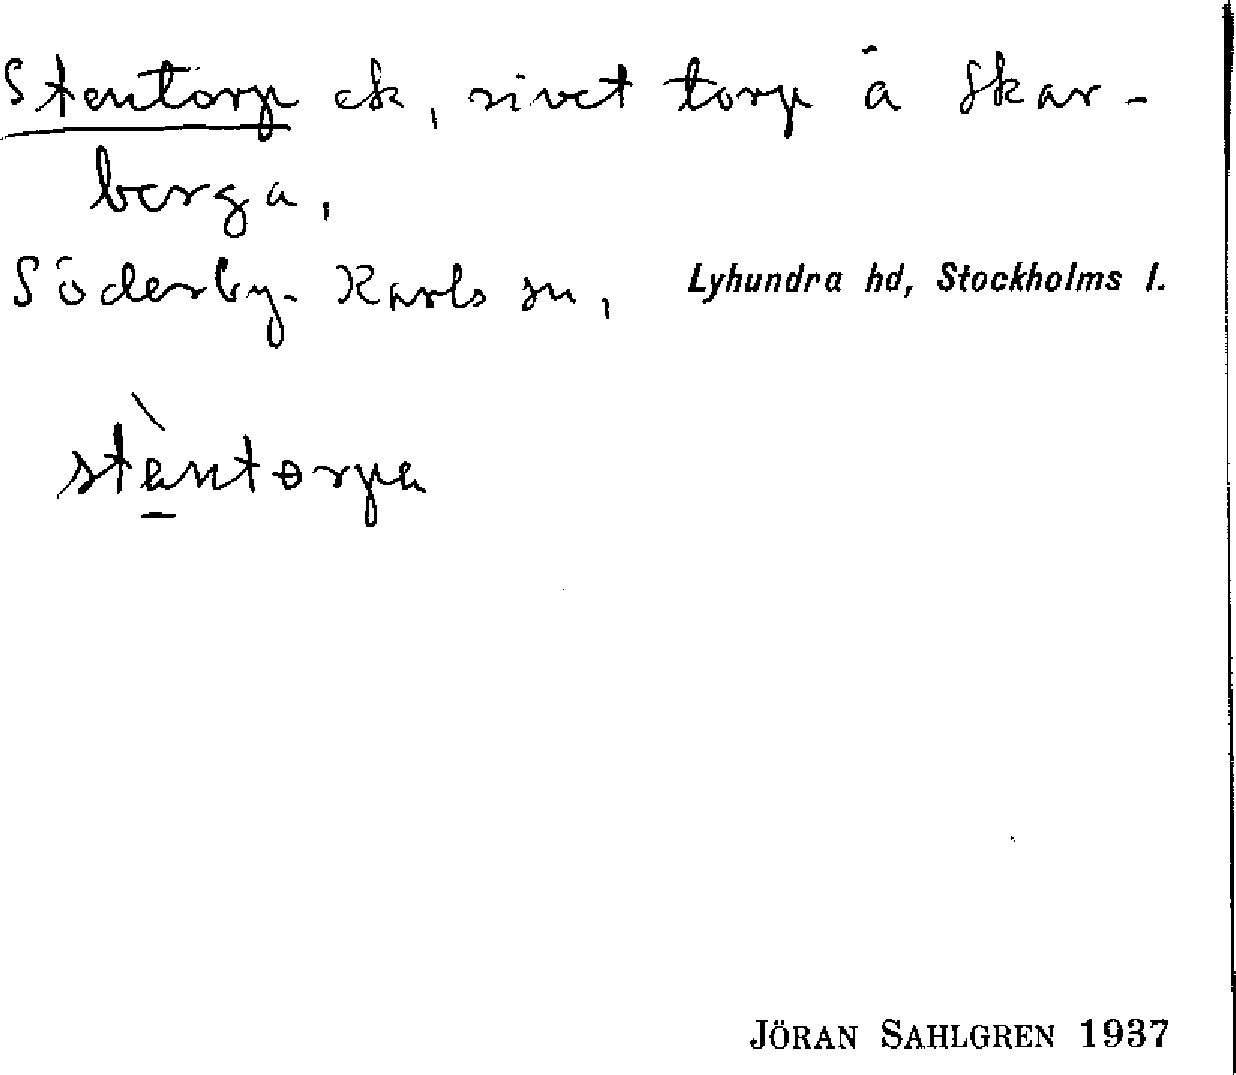 Stentorp ek, rivet torp å Skar-
berga,
Söderby-Karls sn, Lyhundra hd, Stockholms l.
stèntorpa
JÖRAN SAHLGREN 1937